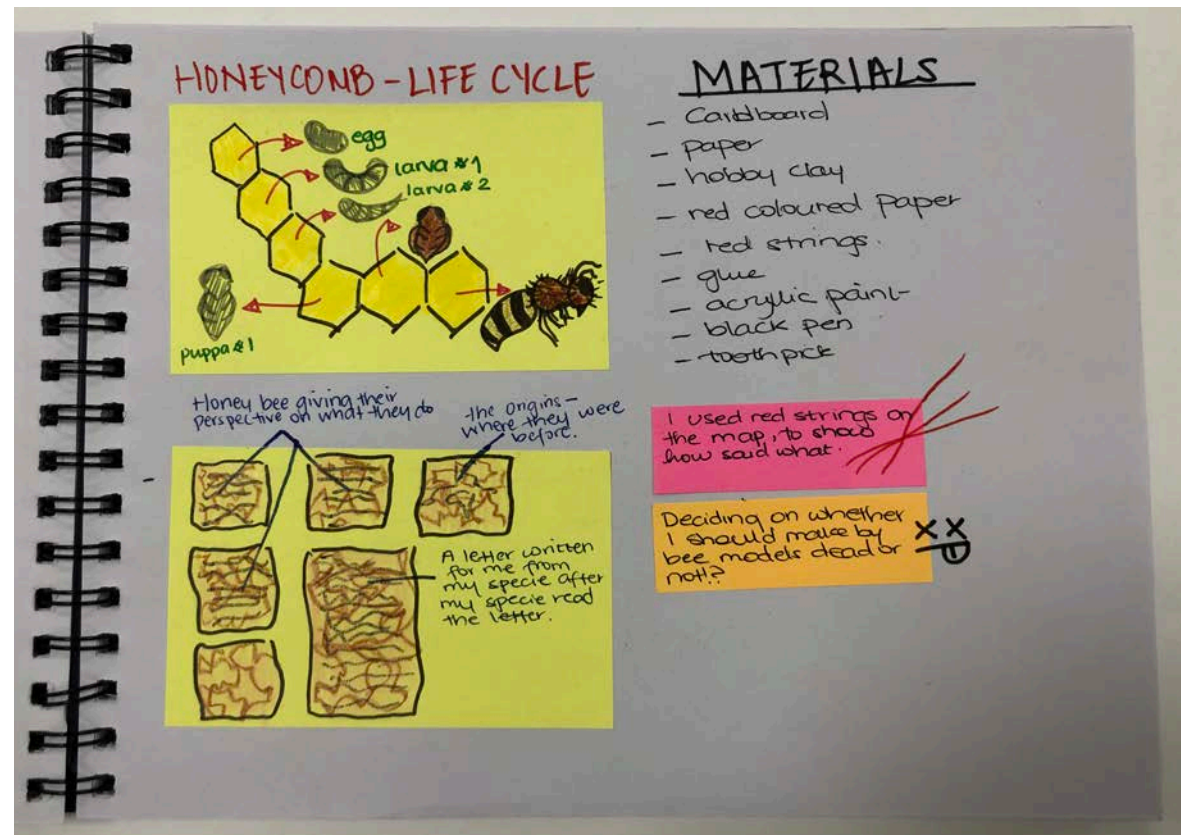 HONEYCOMB - LIFE CYCLE
egg
larva #1
larva #2
puppa #1
Honey bee giving their
perspective on what they do
the origins -
where they were
before.
A letter written
for me from
my specie after
my specie read
the letter.
MATERIALS
- Cardboard
- paper
- hobby clay
- red coloured paper
- red strings.
- glue
- acrylic paint
- black pen
- toothpick
I used red strings on
the map, to show
how said what.
Deciding on whether
I should make by
bee models dead or
not!?